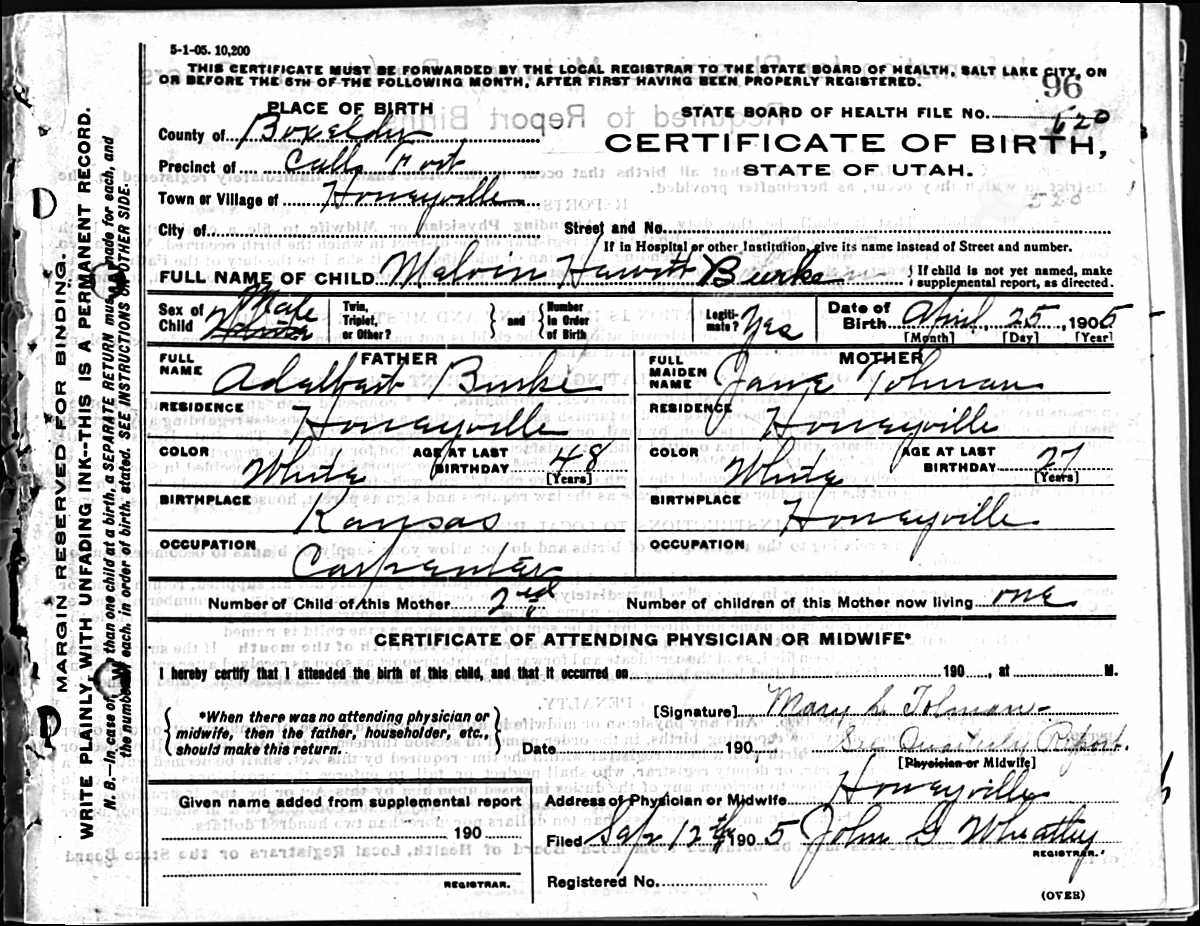 5-1-05. 10,200
THIS CERTIFICATE MUST BE FORWARDED BY THE LOCAL REGISTRAR TO THE STATE BOARD OF HEALTH, SALT LAKE CITY, ON
OR BEFORE THE 5TH OF THE FOLLOWING MONTH, AFTER FIRST HAVING BEEN PROPERLY REGISTERED.
96
PLACE OF BIRTH
STATE BOARD OF HEALTH FILE No. 520
County of Boxelder
CERTIFICATE OF BIRTH,
Precinct of Calls Fort
STATE OF UTAH.
Town or Village of Honeyville
520
City of Street and No.
If in Hospital or other Institution, give its name instead of Street and number.
FULL NAME OF CHILD Melvin Hewitt Burke } If child is not yet named, make
supplemental report, as directed.
Sex of Child Male
Twin, Triplet, or Other? } and { Number in Order of Birth
Legiti-mate? Yes
Date of Birth April, 25, 1905
[Month] [Day] [Year]
FATHER
FULL NAME Adelbert Burke
MOTHER
FULL MAIDEN NAME Jane Tolman
RESIDENCE Honeyville
RESIDENCE Honeyville
COLOR White AGE AT LAST BIRTHDAY 48 [Years]
COLOR White AGE AT LAST BIRTHDAY 27 [Years]
BIRTHPLACE Kansas
BIRTHPLACE Honeyville
OCCUPATION Carpenter
OCCUPATION
Number of Child of this Mother 2ed Number of children of this Mother now living one
CERTIFICATE OF ATTENDING PHYSICIAN OR MIDWIFE*
I hereby certify that I attended the birth of this child, and that it occurred on 190 , at M.
{ *When there was no attending physician or
midwife, then the father, householder, etc.,
should make this return. }
[Signature] Mary L Tolman
Date 190 , See Quarterly Report.
[Physician or Midwife]
Given name added from supplemental report
190
REGISTRAR.
Address of Physician or Midwife Honeyville
Filed Sep 12th 1905 John G Wheatly
REGISTRAR.
Registered No.
(OVER)
MARGIN RESERVED FOR BINDING.
WRITE PLAINLY, WITH UNFADING INK--THIS IS A PERMANENT RECORD.
N. B.—In case of more than one child at a birth, a SEPARATE RETURN must be made for each, and
the number of each, in order of birth, stated. SEE INSTRUCTIONS ON OTHER SIDE.